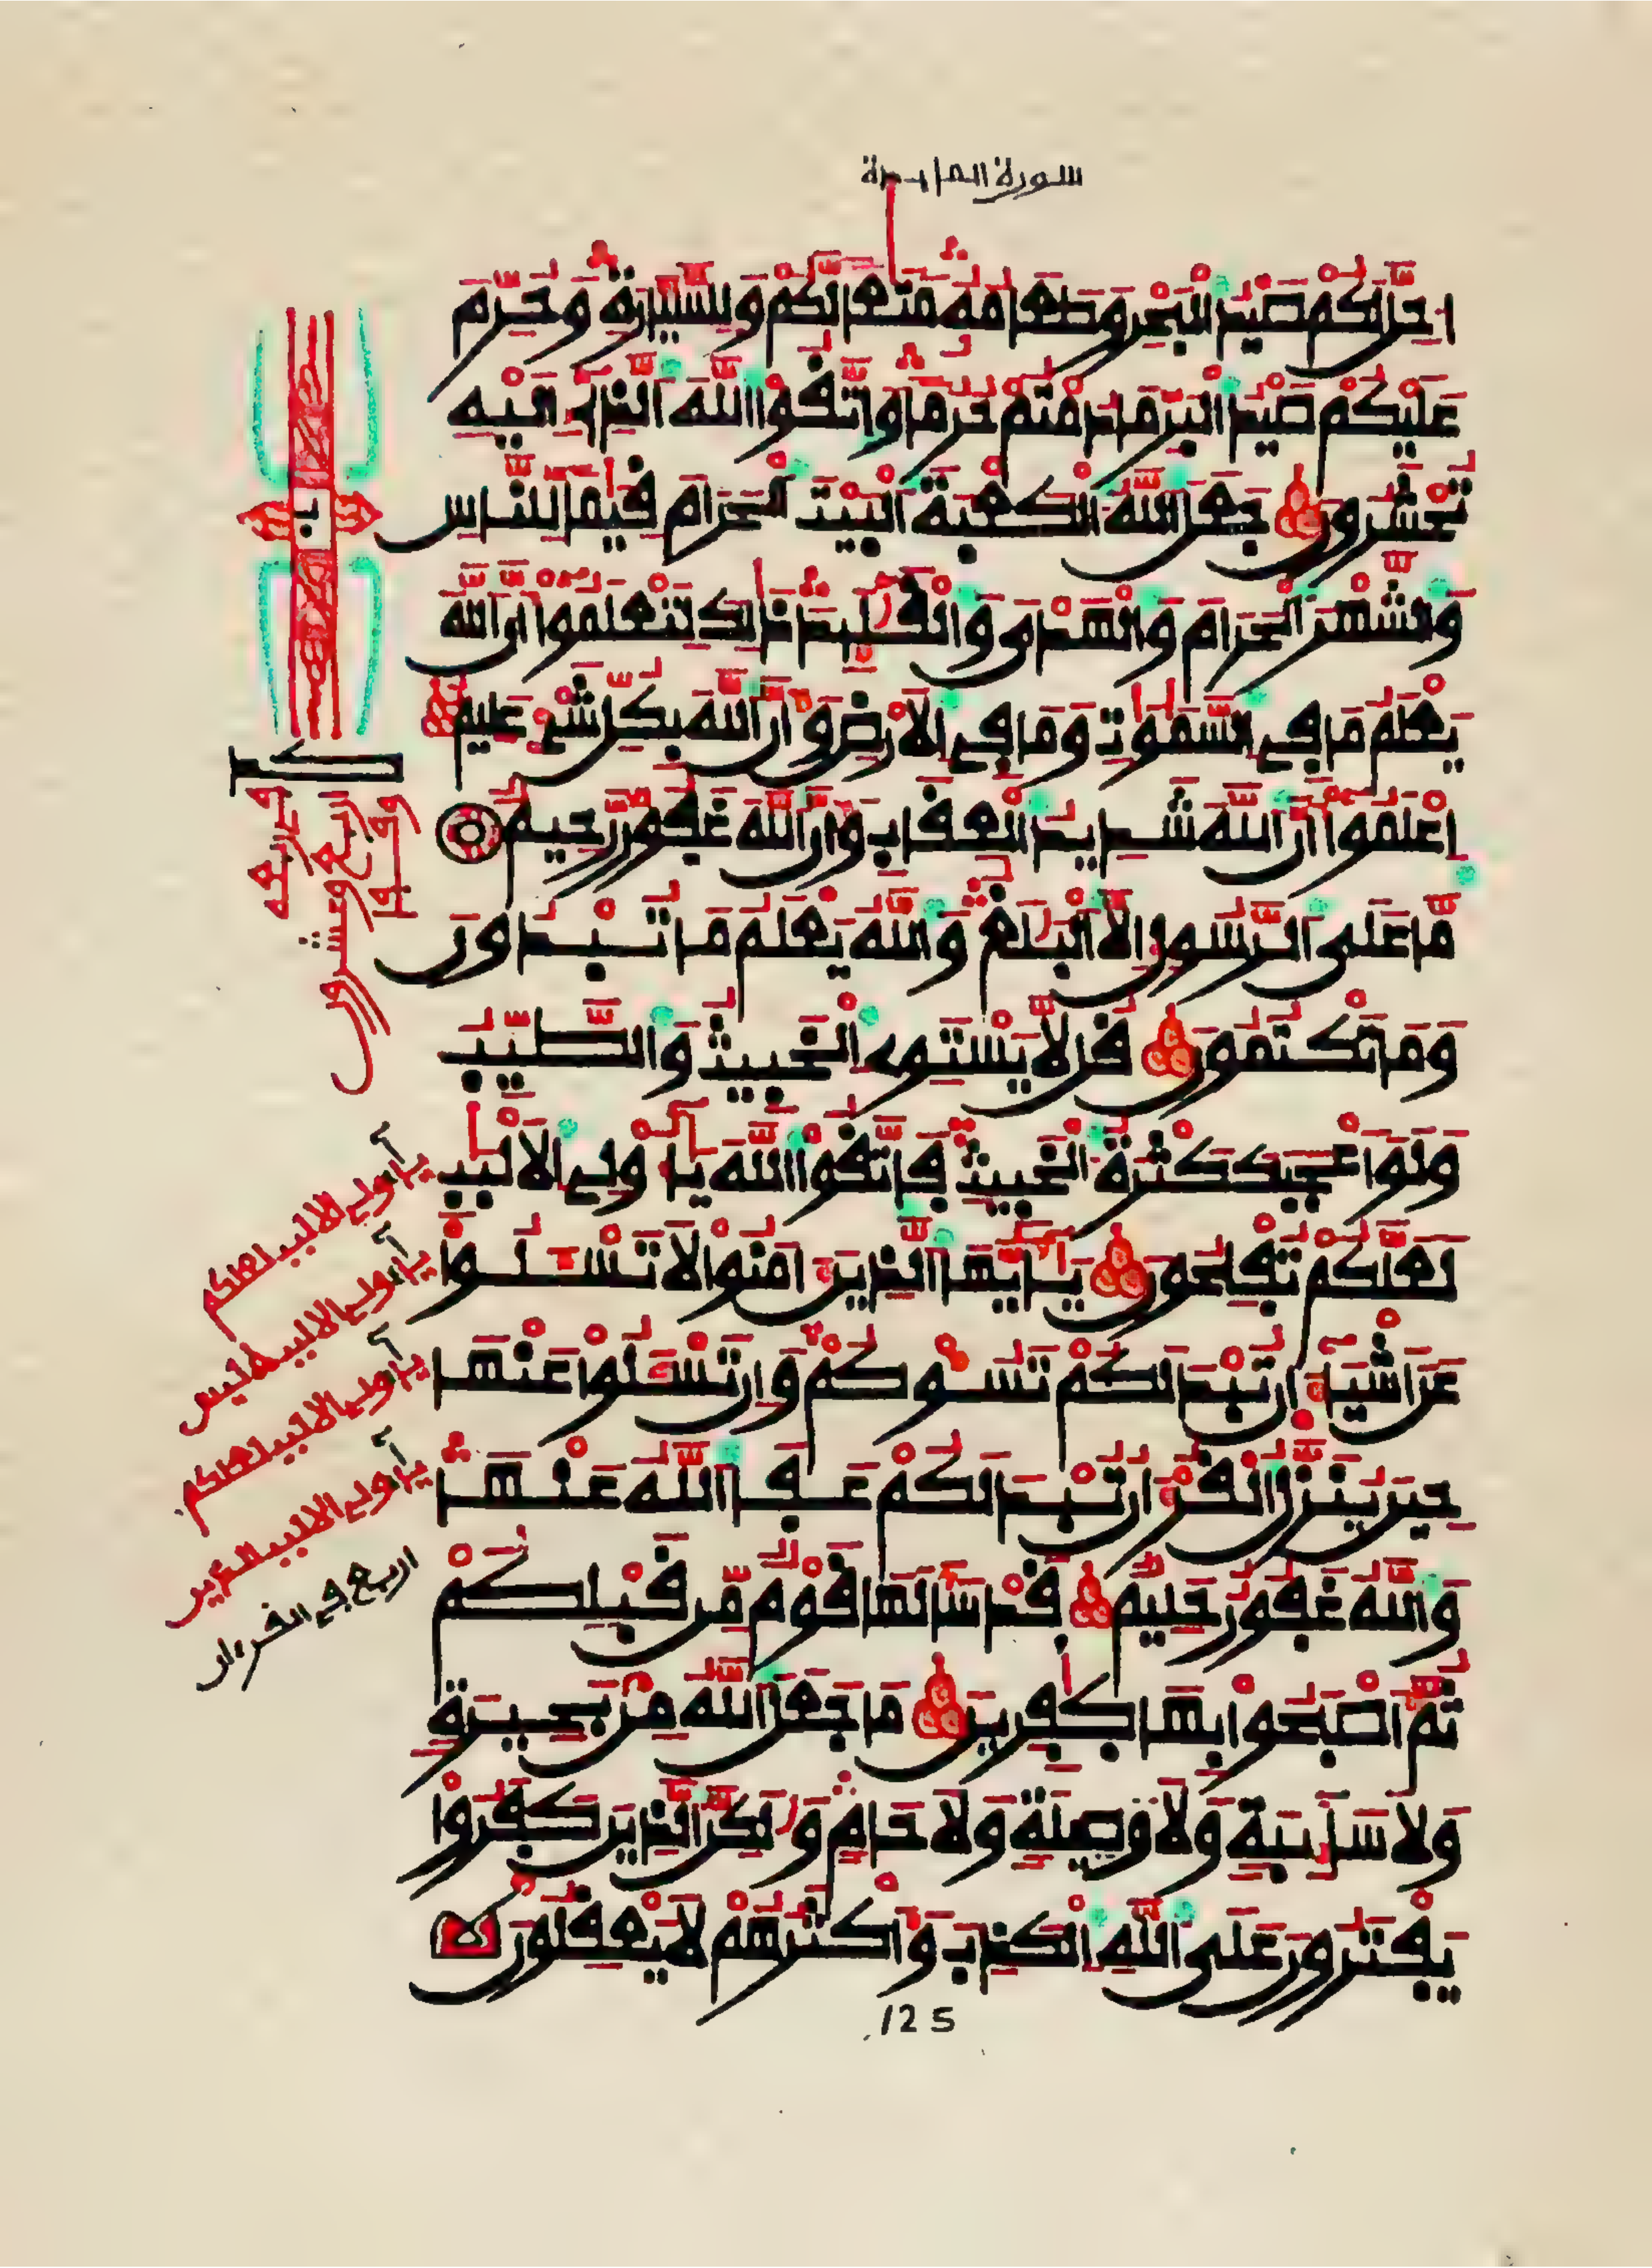 سورة المايدة
احل لكم صيد البحر وطعامه متعا لكم وللسيارة وحرم
عليكم صيد البر ما دمتم حرما واتقوا الله الذى اليه
تحشرون جعل الله الكعبة البيت الحرام قيما للناس
والشهر الحرام والهدى والقليد ذلك لتعلموا أن الله
يعلم ما فى السموت وما فى الارض وأن الله بكل شىء عليم
اعلموا أن الله شديد العقاب وأن الله غفور رحيم
ما على الرسول الا البلغ والله يعلم ما تبدون
وما تكتمون قل لا يستوى الخبيث والطيب
ولو اعجبك كثرة الخبيث فاتقوا الله يأولى الالبب
لعلكم تفلحون يأيها الذين امنوا لا تسلوا
عن اشياء ان تبد لكم تسوكم وان تسلوا عنها
حين ينزل القرءان تبد لكم عفا الله عنها
والله غفور حليم قد سألها قوم من قبلكم
ثم اصبحوا بها كفرين ما جعل الله من بحيرة
ولا سايبة ولا وصيلة ولا حام ولكن الذين كفروا
يفترون على الله الكذب واكثرهم لا يعقلون
ب
كد
ربع وعشرون
يأولى الالبب لعلكم
يأولى الالبب ليس
يأولى الالبب لعلكم
يأولى الالبب الذين
اربع فى القرءان
125